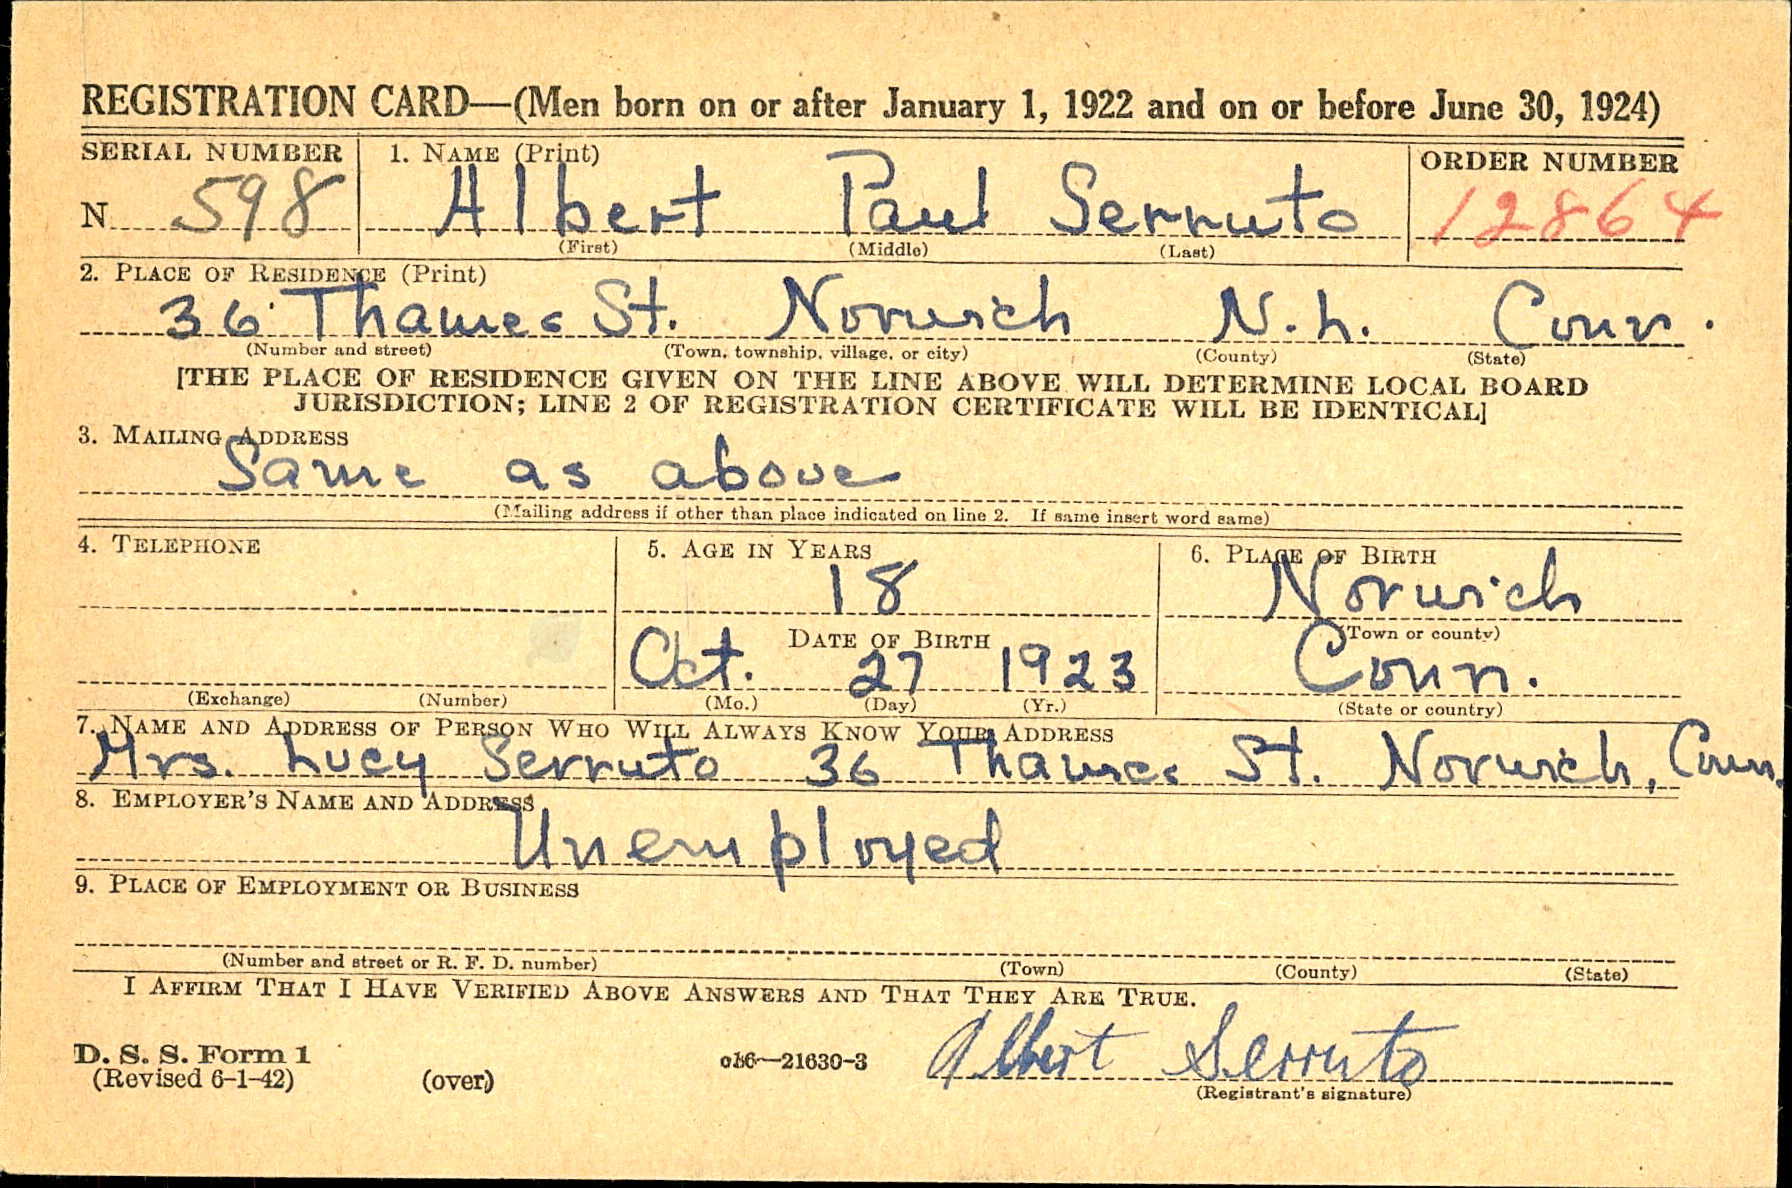 REGISTRATION CARD—(Men born on or after January 1, 1922 and on or before June 30, 1924)
SERIAL NUMBER 1. NAME (Print) ORDER NUMBER
N 598 Albert Paul Serruto 12864
(First) (Middle) (Last)
2. PLACE OF RESIDENCE (Print)
36 Thames St. Norwich N. L. Conn.
(Number and street) (Town, township, village, or city) (County) (State)
[THE PLACE OF RESIDENCE GIVEN ON THE LINE ABOVE WILL DETERMINE LOCAL BOARD
JURISDICTION; LINE 2 OF REGISTRATION CERTIFICATE WILL BE IDENTICAL]
3. MAILING ADDRESS
Same as above
(Mailing address if other than place indicated on line 2. If same insert word same)
4. TELEPHONE 5. AGE IN YEARS 6. PLACE OF BIRTH
18 Norwich
DATE OF BIRTH (Town or county)
Oct. 27 1923 Conn.
(Exchange) (Number) (Mo.) (Day) (Yr.) (State or country)
7. NAME AND ADDRESS OF PERSON WHO WILL ALWAYS KNOW YOUR ADDRESS
Mrs. Lucy Serruto 36 Thames St. Norwich, Conn.
8. EMPLOYER'S NAME AND ADDRESS
Unemployed
9. PLACE OF EMPLOYMENT OR BUSINESS
(Number and street or R. F. D. number) (Town) (County) (State)
I AFFIRM THAT I HAVE VERIFIED ABOVE ANSWERS AND THAT THEY ARE TRUE.
D. S. S. Form 1 16—21630-3 Albert Serruto
(Revised 6-1-42) (over) (Registrant's signature)